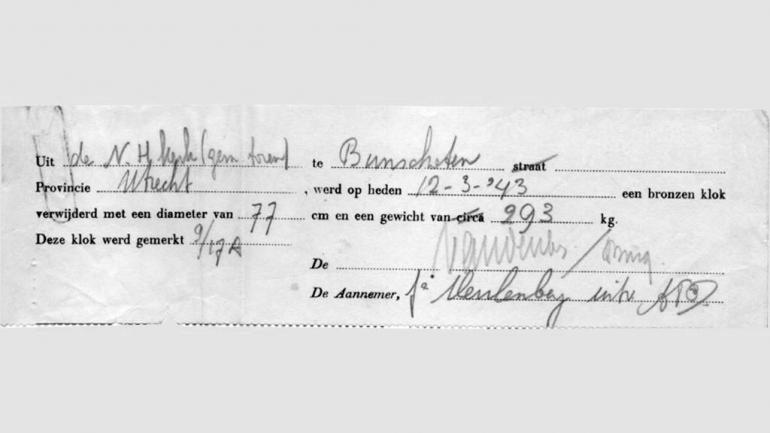 Uit de N. H. kerk (gem toren) te Bunschoten straat
Provincie Utrecht , werd op heden 12-3-'43 een bronzen klok
verwijderd met een diameter van 77 cm en een gewicht van circa 293 kg.
Deze klok werd gemerkt 9/17A
De
De Aannemer, fa Meulenberg